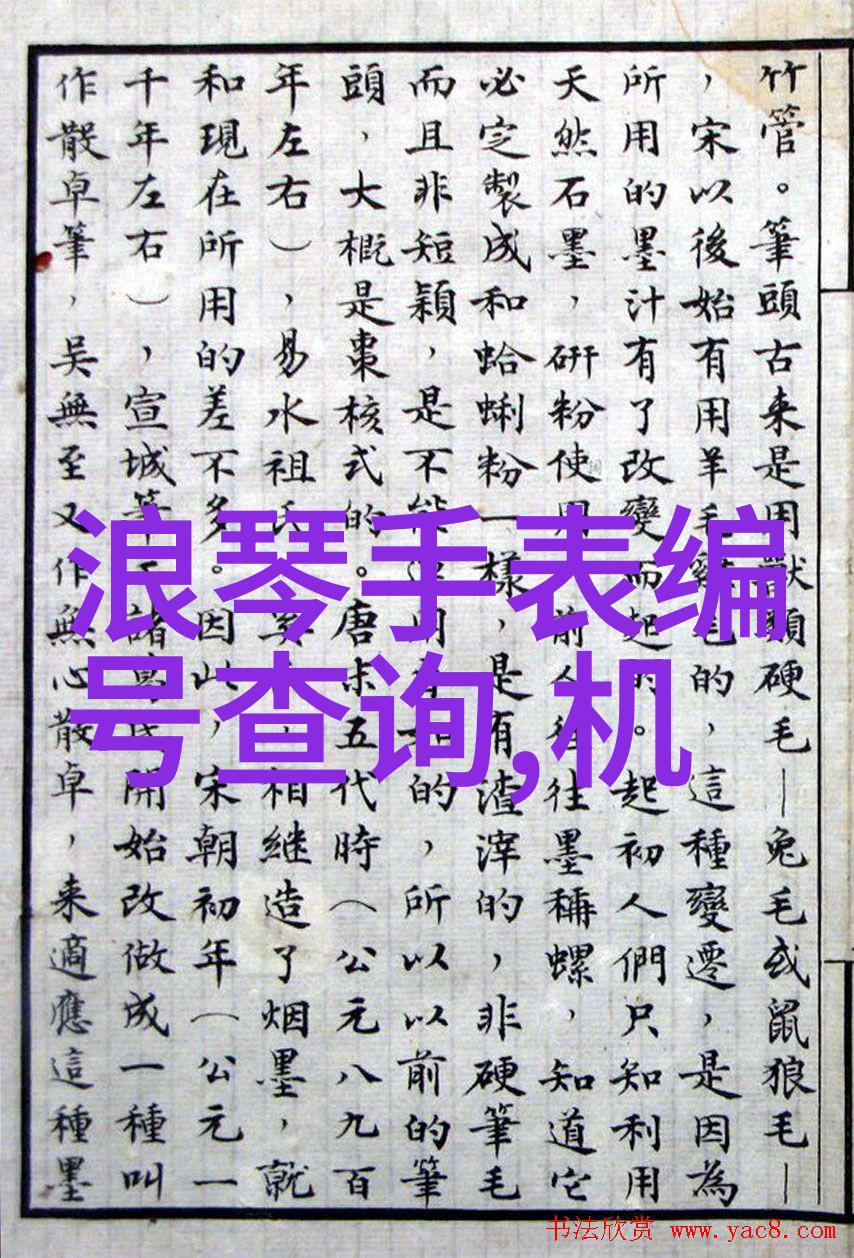 竹管。筆頭古来是用獸類硬毛—兔毛或鼠狼毛—
，宋以後始有用羊毛雞毛的，這種變遷，是因為
所用的墨汁有了改變而起的。起初人們只知利用
天然石墨，研粉使用，前人往往墨稱螺，知道它
必定製成和蛤蜊粉一樣，是有渣滓的，非硬筆毛
而且非短穎，是不能適用的，所以以前的筆
頭，大概是棗核式的。唐末五代時（公元八九百
年左右），易水祖氏奚氏，相継造了烟墨，就
和現在所用的差不多。因此，宋朝初年（公元一
千年左右），宣城筆工諸葛氏開始改做成一種叫
作散卓筆，吳無至又作無心散卓，来適應這種墨
浪琴手表编
号查询,机
书法欣赏 www.yac8.com